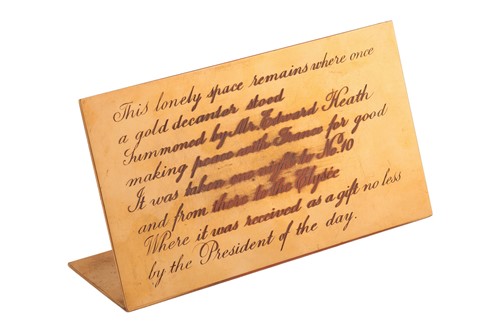 This lonely space remains where once
a gold decanter stood
Summoned by Mr. Edward Heath
making peace with France for good
It was taken one night to No 10
and from there to the Elysée
Where it was received as a gift no less
by the President of the day.